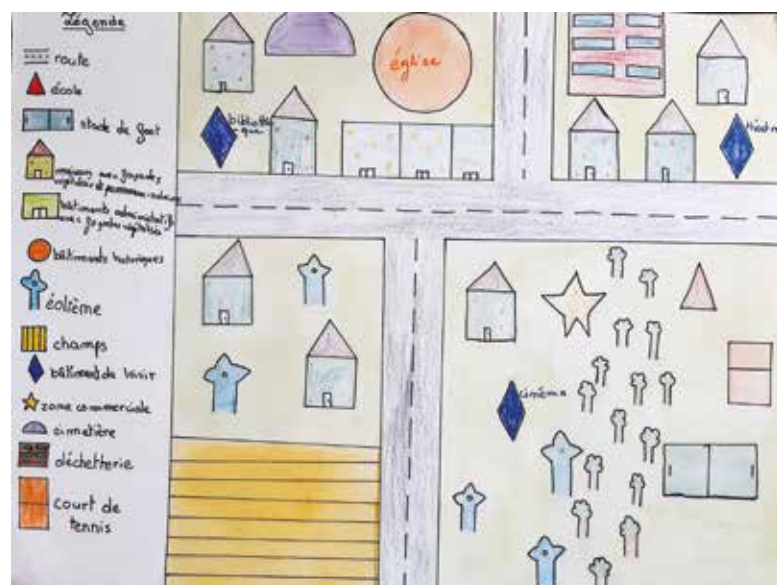 Légende
route
école
stade de foot
maisons avec façades
bâtiments administratifs
avec façades végétalisées
bâtiments historiques
éolienne
champs
bâtiment de loisir
zone commerciale
cimetière
déchetterie
court de
tennis
église
cinéma